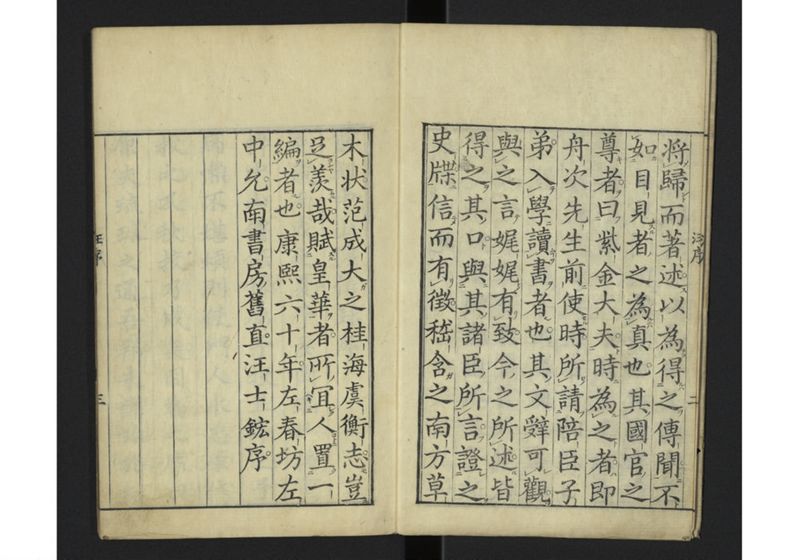 將歸而著述以為得之傳聞不
如目見者之為真也其國官之
尊者曰紫金大夫時為之者即
舟次先生前使時所請陪臣子
弟入學讀書者也其文辭可觀
與之言娓娓有致今之所述皆
得之其口與其諸臣所言證之
史牒信而有徵嵇含之南方草
汪序
二
木狀范成大之桂海虞衡志豈
足羨哉賦皇華者所宜人置一
編者也康熙六十年左春坊左
中允南書房舊直汪士鋐序
汪序
三